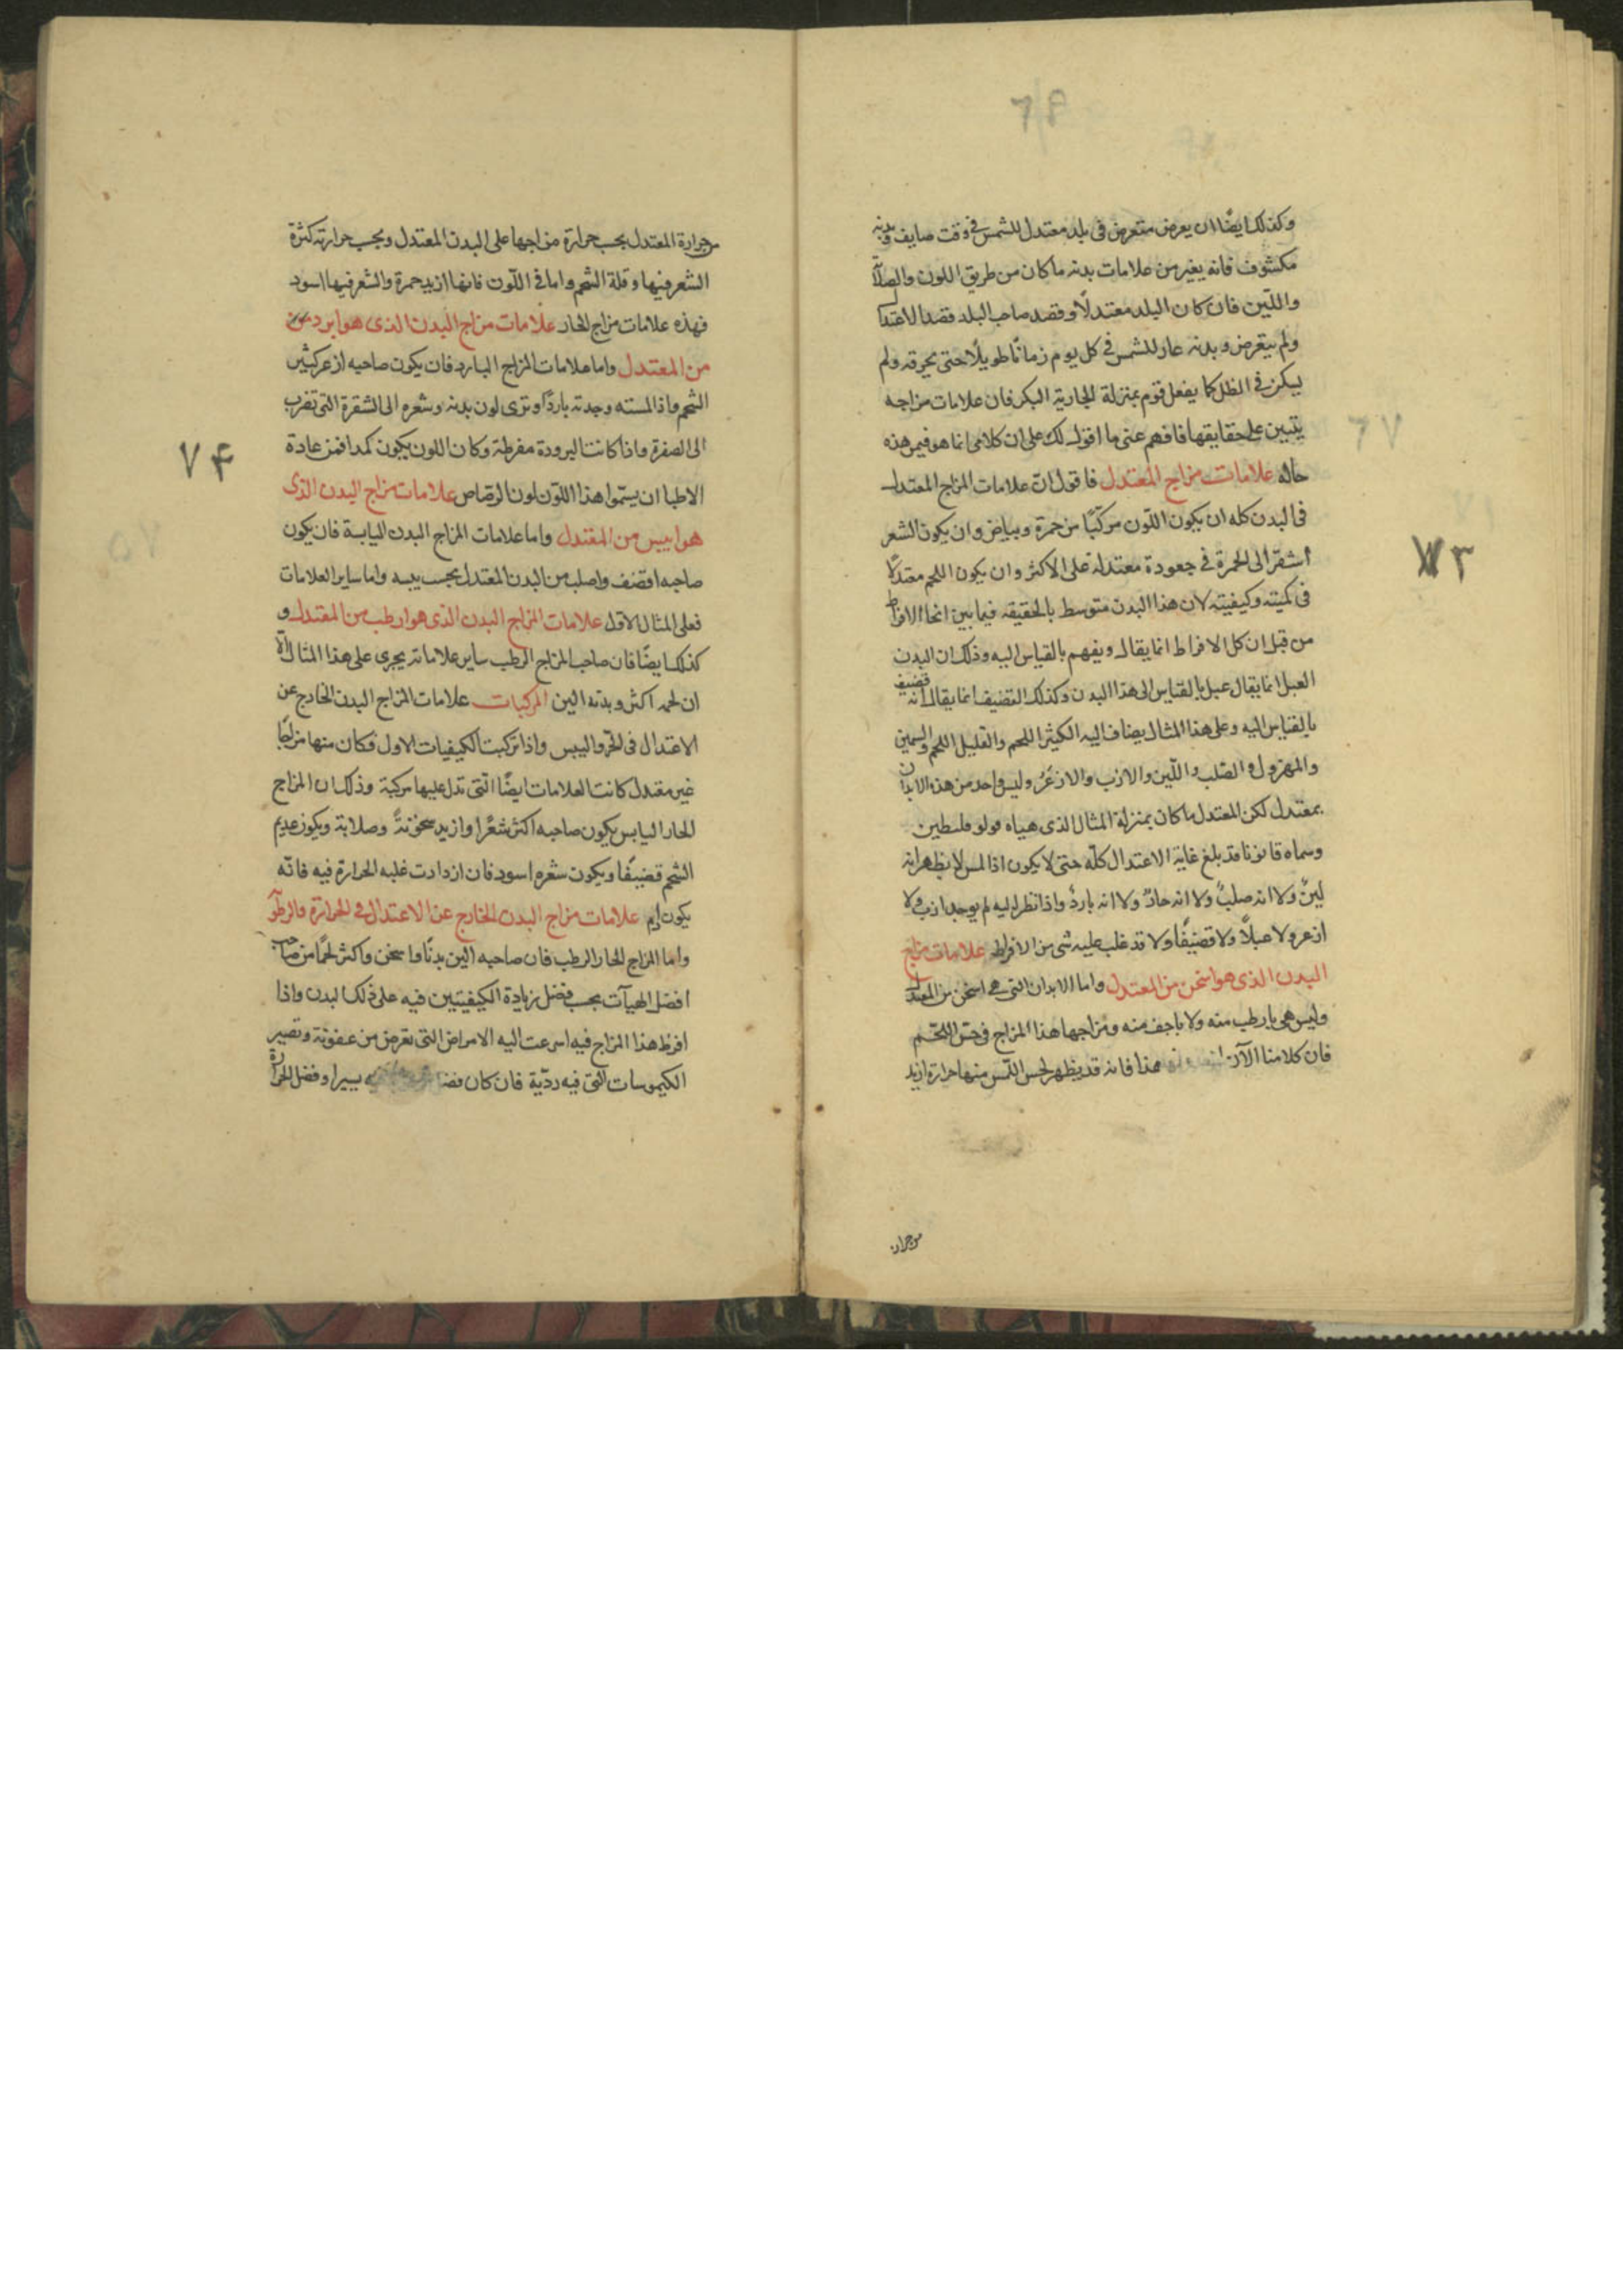 وكذلك ايضًا ان يعرض متعرض فى بلد معتدل للشمس فى وقت صايف وبدنه
مكشوف فانه يغير من علامات بدنه ما كان من طريق اللون والصلابة
واللّين فان كان البلد معتدلًا وقصد صاحب البلد قصد الاعتدا
ولم يتعرض وبدنه عار للشمس فى كل يوم زمانًا طويلًا حتى يحرقه ولم
يسكن فى الظل كما يفعل قوم بمنزلة الجارية البكر فان علامات مزاجه
يتبين على حقايقها فافهم عنى ما اقول لك على ان كلامى انما هو فيمن هذه
حاله علامات مزاج المعتدل فاقول انّ علامات المزاج المعتدل
فى البدن كله ان يكون اللّون مركّبًا من حمرة وبياض وان يكون الشعر
اشقر الى الحمرة فى جعودة معتدلة على الاكثر وان يكون اللحم معتدلًا
فى كميته وكيفيته لان هذا البدن متوسط بالحقيقه فيما بين انحاء الافراط
من قبل ان كل الافراط انما يقال ويفهم بالقياس اليه وذلك ان البدن
العبل انما يقال عبل بالقياس الى هذا البدن وكذلك القضيف انما يقال انه قضيف
بالقياس اليه وعلى هذا المثال يضاف اليه الكثير اللحم والقليل اللحم والسمين
والمهزول والصّلب واللّين والازب والازعر وليس واحد من هذه الابدان
بمعتدل لكن المعتدل ما كان بمنزلة المثال الذى هياه فولو فلسطين
وسماه قانونا قد بلغ غاية الاعتدال كلّه حتى لا يكون اذا لمس لا يظهر انه
لينٌ ولا انه صلبٌ ولا انه حارٌ ولا انه باردٌ واذا نظر اليه لم يوجد ازب ولا
ازعر ولا عبلًا ولا قضيفًا ولا قد غلب عليه شى من الافراط علامات مزاج
البدن الذى هو اسخن من المعتدل واما الابدان التى هى اسخن من المعتدل
وليس هى بارطب منه ولا باجف منه ومزاجها هذا المزاج فى حسّ اللحم
فان كلامنا الآن هذا فانه قد يظهر لحس اللّمس منها حرارة ازيد
من حرارة
٧٣
٦٧
من حرارة المعتدل بحسب حرارة مزاجها على البدن المعتدل وبحسب حرارته كثرة
الشعر فيها وقلة الشحم واما فى اللّون فانها ازيد حمرة والشعر فيها اسود
فهذه علامات مزاج الحار علامات مزاج البدن الذى هو ابرد من
من المعتدل واما علامات المزاج البارد فان يكون صاحبه ازعر كثير
الشحم واذا لمسته وجدته باردًا وترى لون بدنه وشعره الى الشقرة التى تضرب
الى الصفرة واذا كانت البرودة مفرطة وكان اللون يكون كمدا فمن عادة
الاطبا ان يسمّوا هذا اللّون لون الرصاص علامات مزاج البدن الذى
هو ايبس من المعتدل واما علامات المزاج البدن اليابسة فان يكون
صاحبه اقضف واصلب من البدن المعتدل بحسب يبسه واما ساير العلامات
فعلى المثال الاول علامات المزاج البدن الذى هو ارطب من المعتدل و
كذلك ايضًا فان صاحب المزاج الرطب ساير علاماته يجرى على هذا المثال الّا
ان لحمه اكثر وبدنه الين المركبات علامات المزاج البدن الخارج عن
الاعتدال فى الحّر واليبس واذا تركبت الكيفيات الاول فكان منها مزاجًا
غير معتدل كانت العلامات ايضًا الّتى تدل عليها مركبة وذلك ان المزاج
الحار اليابس يكون صاحبه اكثر شعرًا وازيد سخونةً وصلابة ويكون عديم
الشحم قضيفًا ويكون شعره اسود فان ازدادت غلبه الحرارة فيه فانّه
يكون ادم علامات مزاج البدن الخارج عن الاعتدال فى الحرارة والرطوبة
واما المزاج الحار الرطب فان صاحبه الين بدنًا واسخن واكثر لحمًا من صاحب
افضل الهيآت بحسب فضل زيادة الكيفيتين فيه على ذلك البدن واذا
افرط هذا المزاج فيه اسرعت اليه الامراض التى تعرض من عفونة وتصير
الكيموسات الّتى فيه رديّة فان كان فضل يسيرا وفضل الحرارة
٧۴